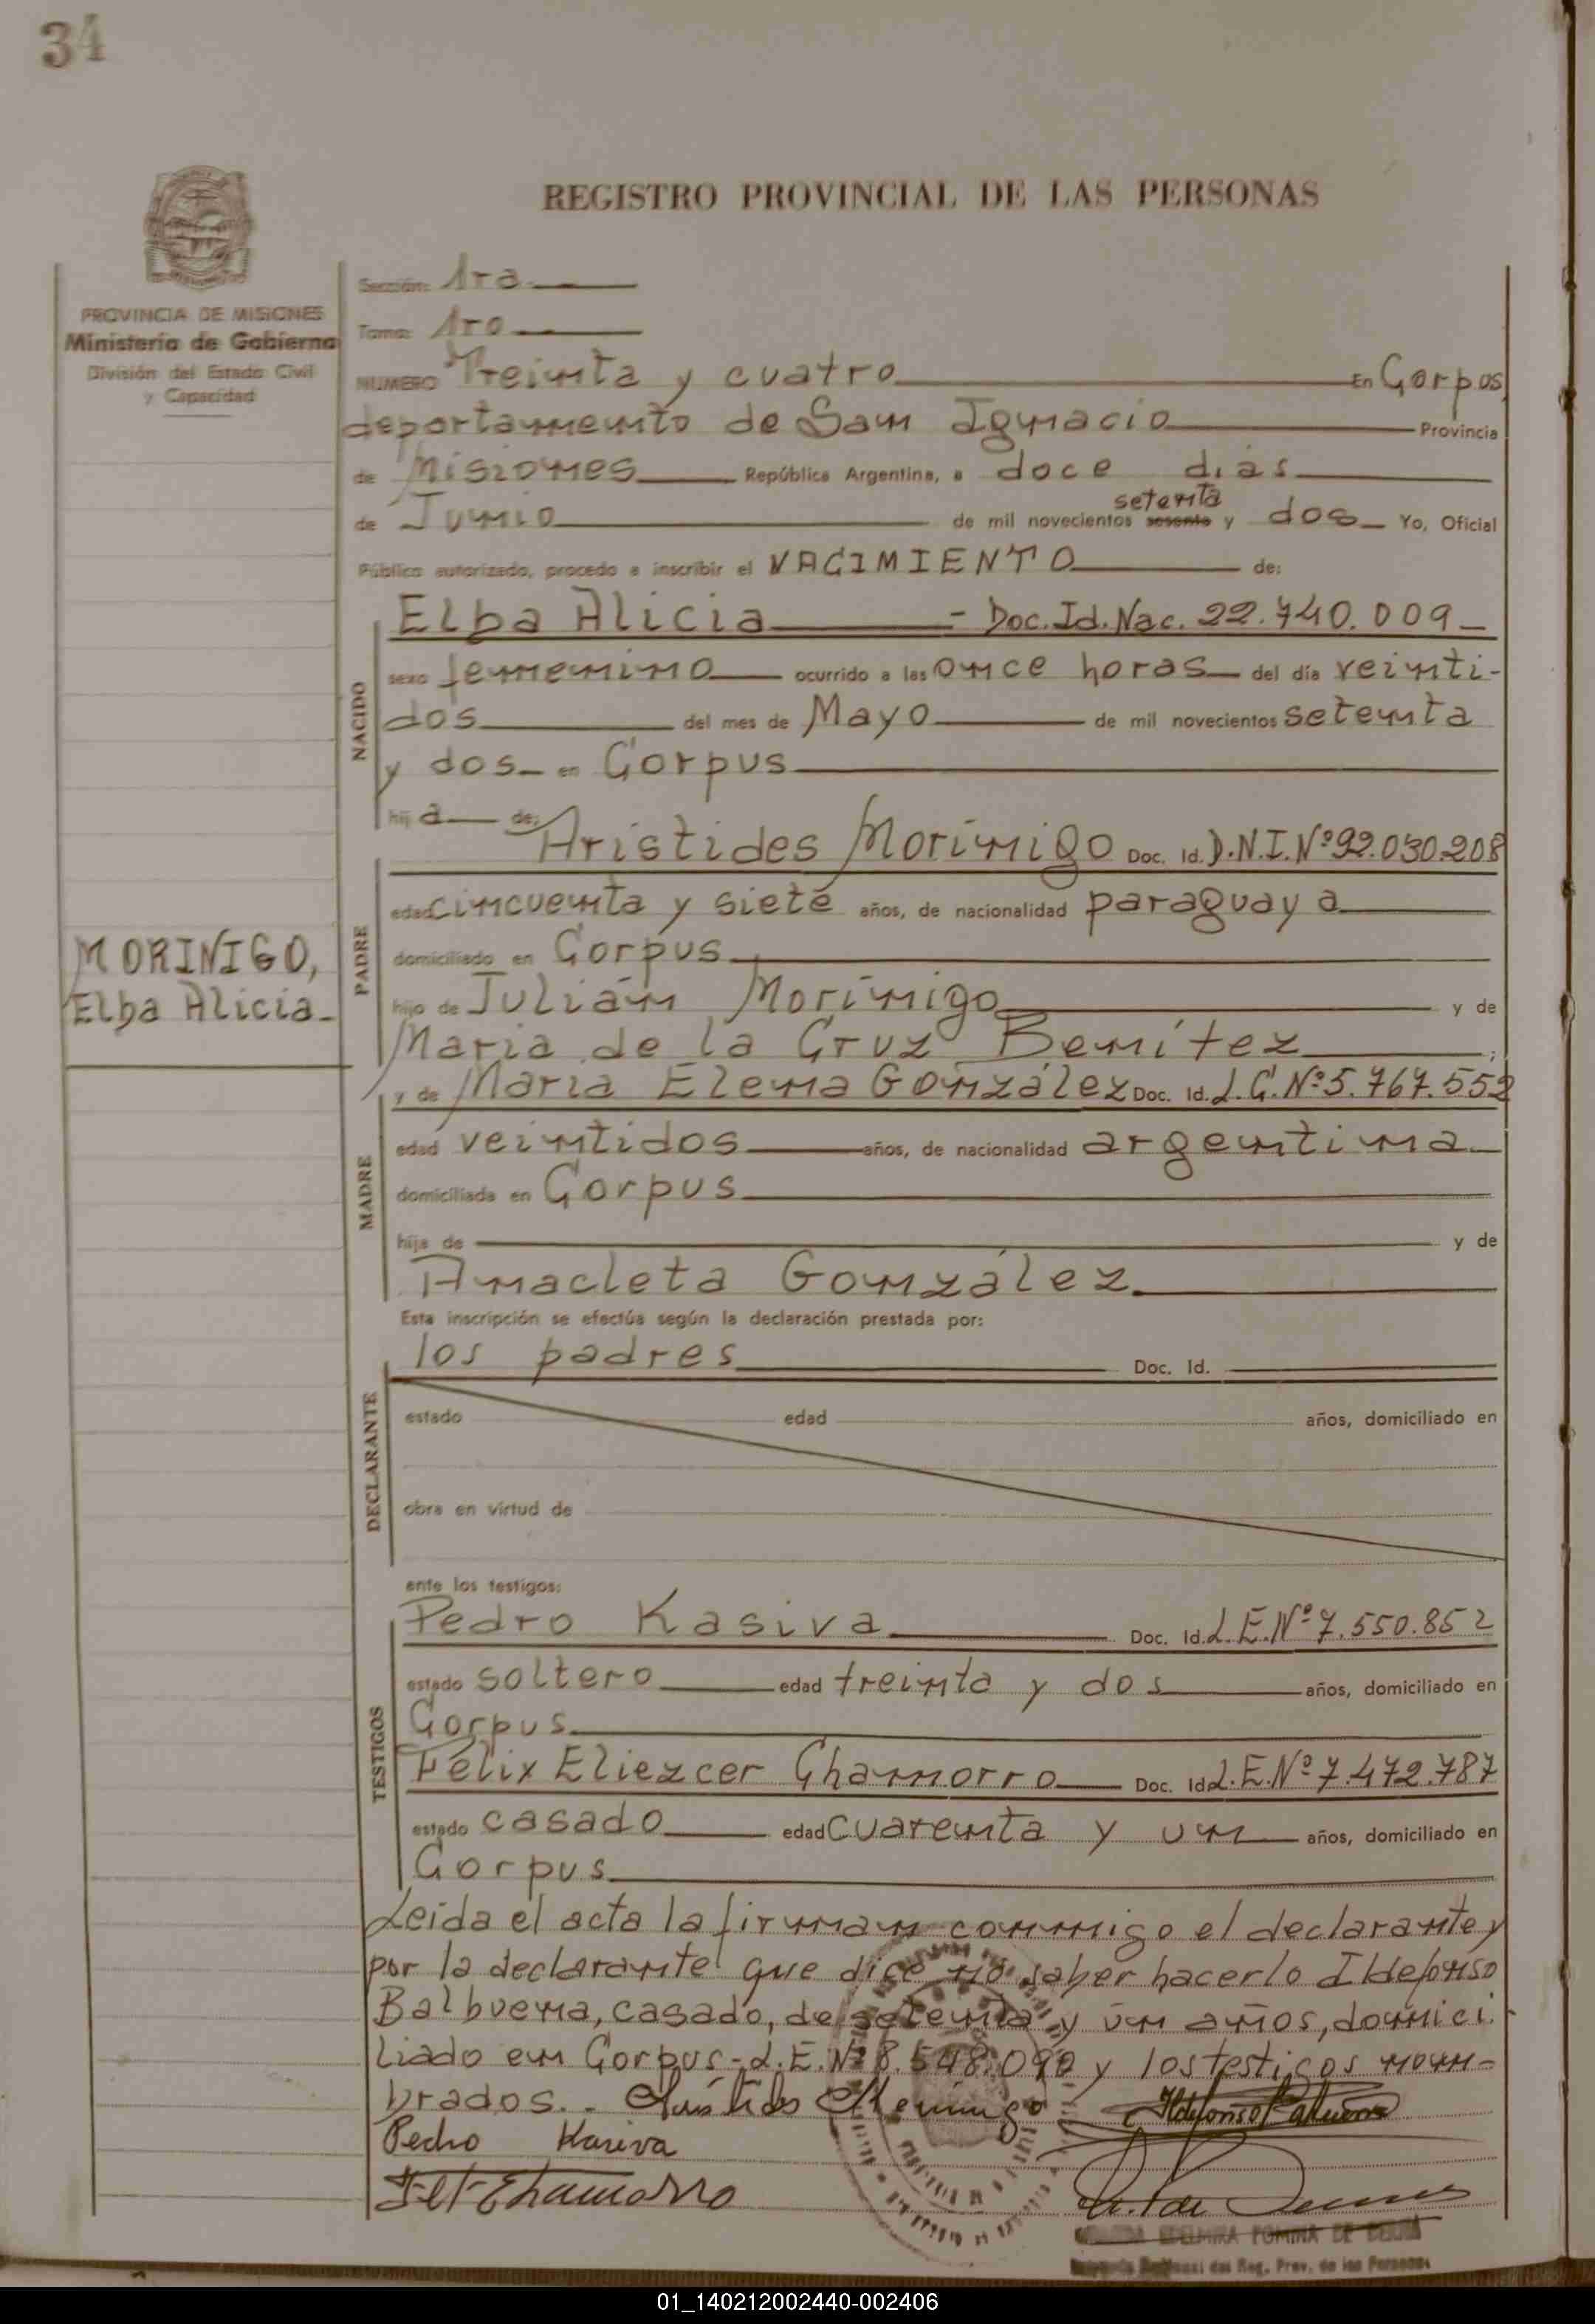 34
REGISTRO PROVINCIAL DE LAS PERSONAS
PROVINCIA DE MISIONES
Ministerio de Gobierno
División del Estado Civil
y Capacidad
Sección: 1ra.
Tomo: 1ro
NUMERO Treinta y cuatro En Corpus,
departamento de San Ignacio Provincia
de Misiones República Argentina, a doce días
setenta
de Junio de mil novecientos sesenta y dos Yo, Oficial
Público autorizado, procedo a inscribir el NACIMIENTO de:
NACIDO
Elba Alicia - Doc. Id. Nac. 22.740.009
sexo femenino ocurrido a las once horas del día veinti-
dos del mes de Mayo de mil novecientos setenta
y dos en Corpus
hij a de:
PADRE
Aristides Morínigo Doc. Id. D.N.I. Nº 92.030.208
edad cincuenta y siete años, de nacionalidad paraguaya
domiciliado en Corpus
MORINIGO,
Elba Alicia
hijo de Julián Morínigo y de
Maria de la Cruz Benítez ;
MADRE
y de Maria Elena González Doc. Id. L.C. Nº 5.767.552
edad veintidos años, de nacionalidad argentina
domiciliada en Corpus
hija de y de
Anacleta González
Esta inscripción se efectúa según la declaración prestada por:
DECLARANTE
los padres Doc. Id.
estado edad años, domiciliado en
obra en virtud de
ante los testigos:
TESTIGOS
Pedro Kasiva Doc. Id. L.E. Nº 7.550.852
estado soltero edad treinta y dos años, domiciliado en
Corpus
Félix Eliezcer Chamorro Doc. Id. L.E. Nº 7.472.787
estado casado edad cuarenta y un años, domiciliado en
Corpus
Leida el acta la firman conmigo el declarante y
por la declarante que dice no saber hacerlo Ildefonso
Balbuena, casado, de setenta y un años, domici
liado en Corpus - L.E. Nº 8.548.090 y los testigos nom-
brados.. Arístides Morínigo Ildefonso Balbuena
Pedro Kasiva
Felix E Chamorro
EDELMIRA ROMINA DE
del Reg. Prov. de las Personas
01_140212002440-002406